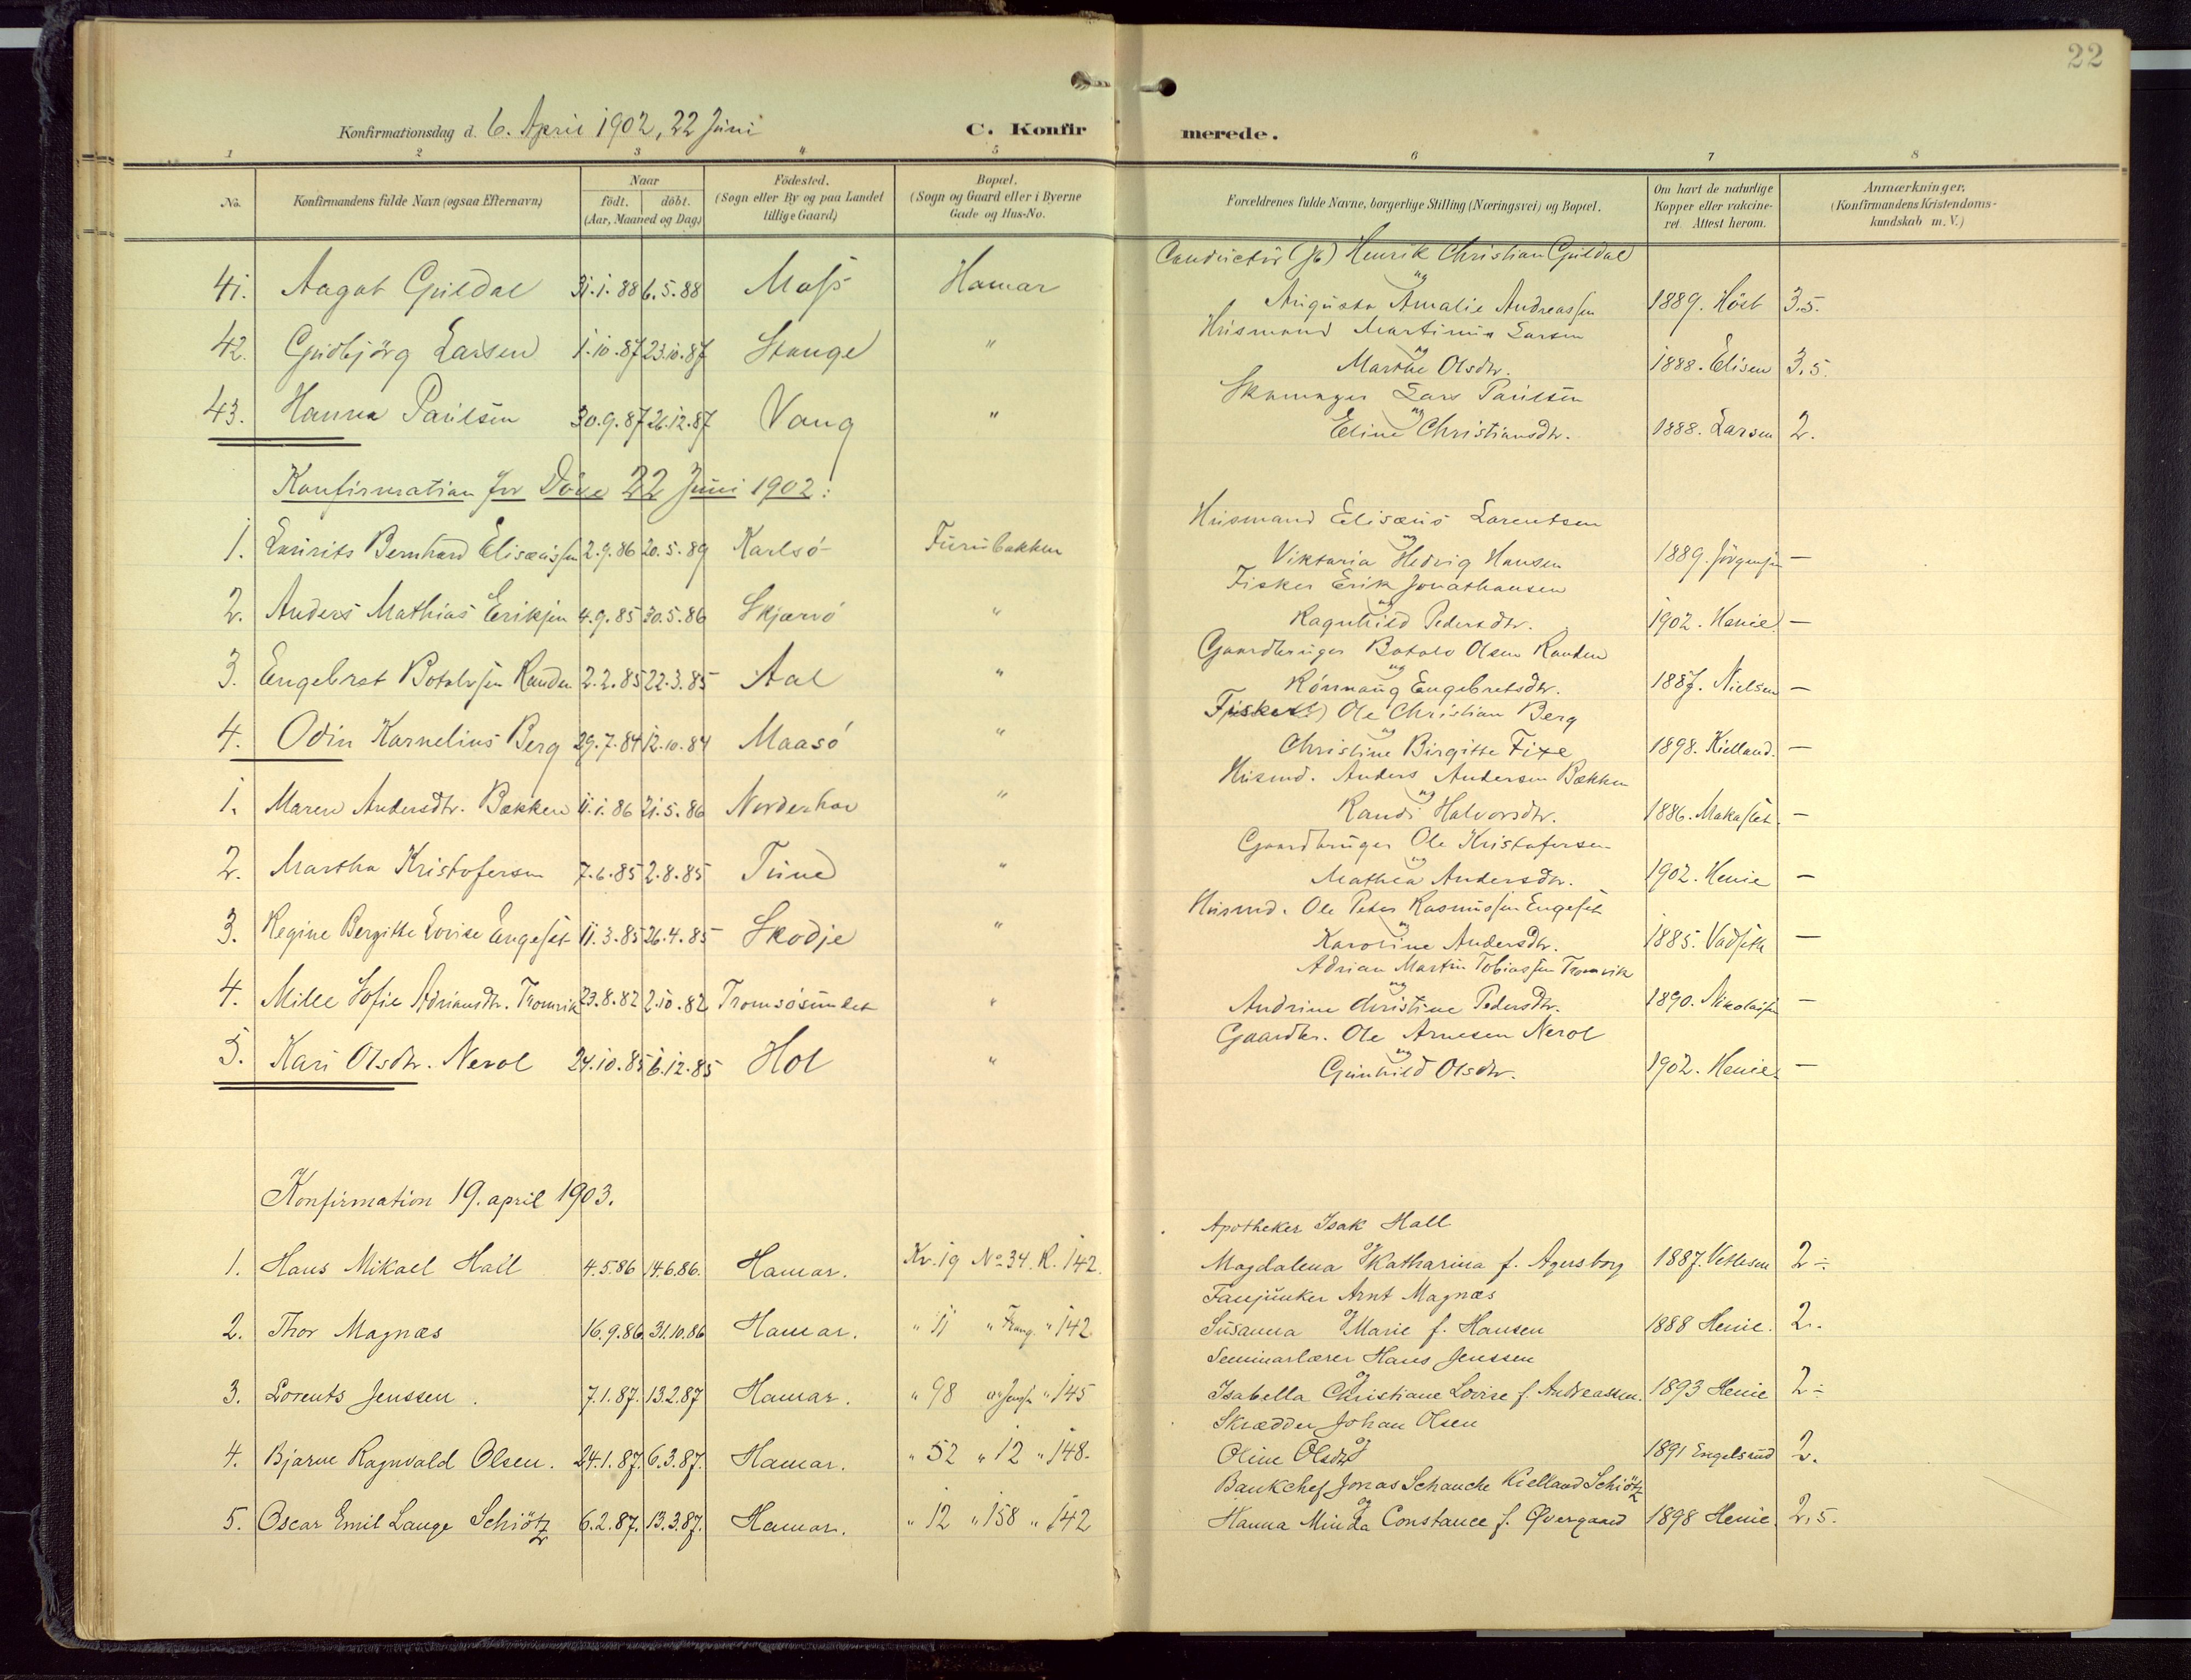 22
Konfirmationsdag d. 6. April 1902, 22 Juni
C. Konfirmerede.
1 2 3 4 5 6 7 8
No.
Konfirmandens fulde Navn (ogsaa Efternavn)
Naar
födt. döbt.
(Aar, Maaned og Dag)
Födested.
(Sogn eller By og paa Landet
tillige Gaard)
Bopæl.
(Sogn og Gaard eller i Byerne
Gade og Hus-No.
Forældrenes fulde Navne, borgerlige Stilling (Næringsvei) og Bopæl.
Om havt de naturlige
Kopper eller vakcine-
ret. Attest herom.
Anmærkninger.
(Konfirmandens Kristendoms-
kundskab m. V.)
Conductör (Jb) Henrik Christian Guldal
41. Aagot Guldal 31.1.88 6.5.88 Moss Hamar og Augusta Amalie Andreassen 1889. Höst 3.5.
Husmand Martinus Larsen
42. Gudbjörg Larsen 1.10.87 23.10.87 Stange " og Marthe Olsdtr. 1888. Elisen 3.5.
Skomager Lars Paulsen
43. Hanna Paulsen 30.9.87 26.12.87 Vang " og Eline Christiansdtr. 1888. Larsen 2.
Konfirmation for Döve 22 Juni 1902:
Husmand Elisæus Lorentsen
1. Laurits Bernhard Elisæussen 2.9.86 20.5.89 Karlsö Furubakken og Viktoria Hedvig Hansen 1889. Jörgensen —
Fisker Erik Jonathansen
2. Anders Mathias Eriksen 4.9.85 30.5.86 Skjærvö " og Ragnhild Pedersdtr. 1902. Henie —
Gaardbruger Botolv Olsen Randen
3. Engebret Botolvsen Randen 2.2.85 22.3.85 Aal " og Rönnaug Engebretsdtr. 1887. Nielsen —
Fisker(?) Ole Christian Berg
4. Odin Kornelius Berg 29.7.84 12.10.84 Maasö " og Christine Birgitte Fixe 1898. Kielland. —
Husmd. Anders Andersen Bækken
1. Maren Andersdtr. Bækken 11.1.86 21.5.86 Norderhov " og Randi Halvorsdtr. 1886. —
Gaardbruger Ole Kristofersen
2. Martha Kristofersen 7.6.85 2.8.85 Tune " og Mathea Andersdtr. 1902. Henie —
Husmd. Ole Peter Rasmussen Engeset
3. Regine Bergitte Lovise Engeset 11.3.85 26.4.85 Skodje " og Karoline Andersdtr. 1885. —
Adrian Martin Tobiassen Tromvik
4. Mille Sofie Adriansdtr. Tromvik 23.8.82 2.10.82 Tromsösundet " og Andrine Christine Pedersdtr. 1890. Nikolaisen —
Gaardbr. Ole Arnesen Nerol
5. Kari Olsdtr. Nerol 24.10.85 6.12.85 Hol " og Gunhild Olsdtr. 1902. Henie —
Konfirmation 19. april 1903.
Apotheker Isak Hall
1. Hans Mikael Hall 4.5.86 14.6.86. Hamar. Kv. 19 No 34. R. 142. og Magdalena Katharina f. Agersborg 1887. Vetlesen 2÷
Fanejunker Arnt Magnæs
2. Thor Magnæs 16.9.86 31.10.86 Hamar. " 11 " Frang. " 142 og Susanna Marie f. Hansen 1888 Henie. 2.
Seminarlærer Hans Jenssen
3. Lorents Jenssen. 7.1.87. 13.2.87 Hamar. " 98 " 145 og Isabella Christiane Lovise f. Andreassen. 1893 Henie 2÷
Skrædder Johan Olsen
4. Bjarne Ragnvald Olsen. 24.1.87. 6.3.87. Hamar. " 52 " 12 " 148. og Oline Olsdtr 1891 Engelsrud 2.
Bankchef Jonas Schanche Kielland Schiötz
5. Oscar Emil Lange Schiötz 6.2.87. 13.3.87. Hamar. " 12 " 158 " 142 og Hanna Minda Constance f. Øvergaard 1898 Henie. 2,5.